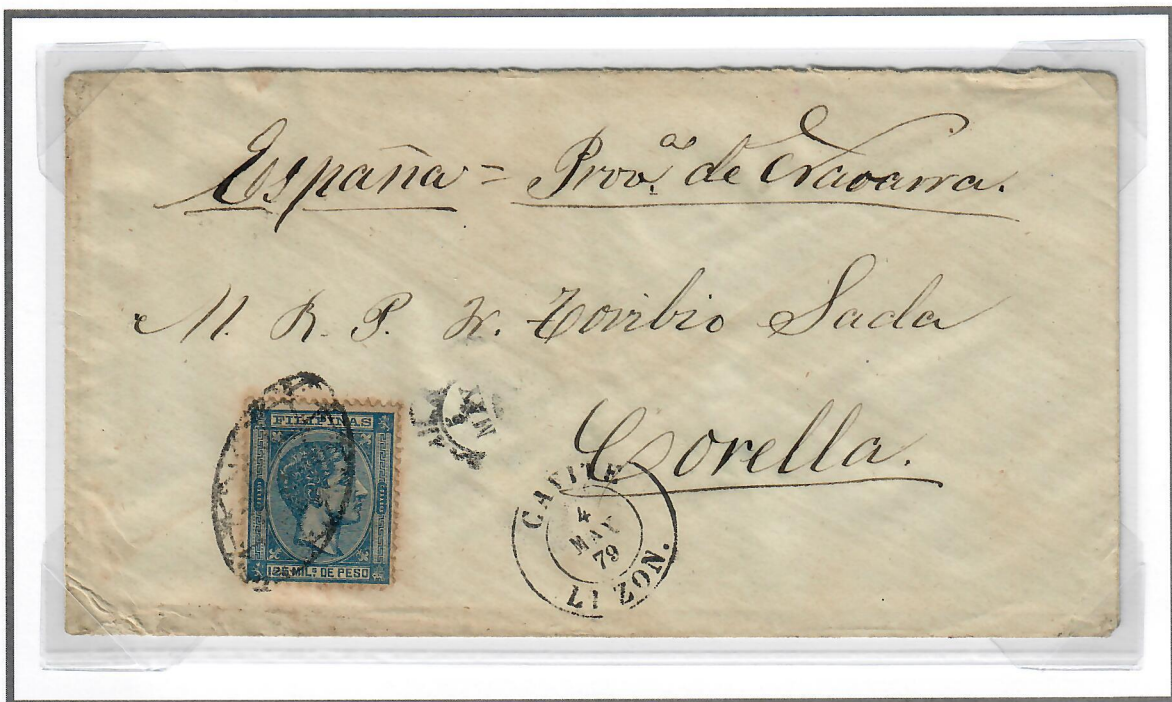 España = Prov.ª de Navarra.
M. R. P. Fr. Toribio Sada
Corella.
FILIPINAS
125 MIL.s DE PESO
CAVITE
4
MAY
79
LUZON.